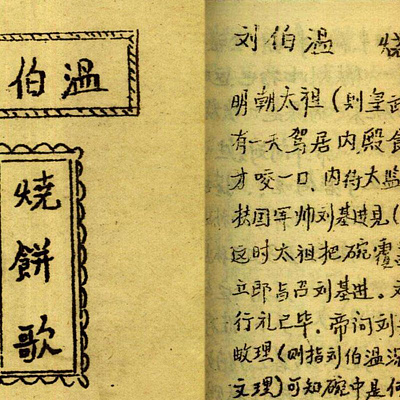 伯温
燒餅歌
刘伯温 烧
明朝太祖(则皇武
有一天驾居内殿食
才咬一口、内侍太监
扶国军帅刘基进見(
这时太祖把碗覆盖
立即召刘基进。
行礼已毕。帝问刘
敝理(则指刘伯温深
文理)可知碗中是何